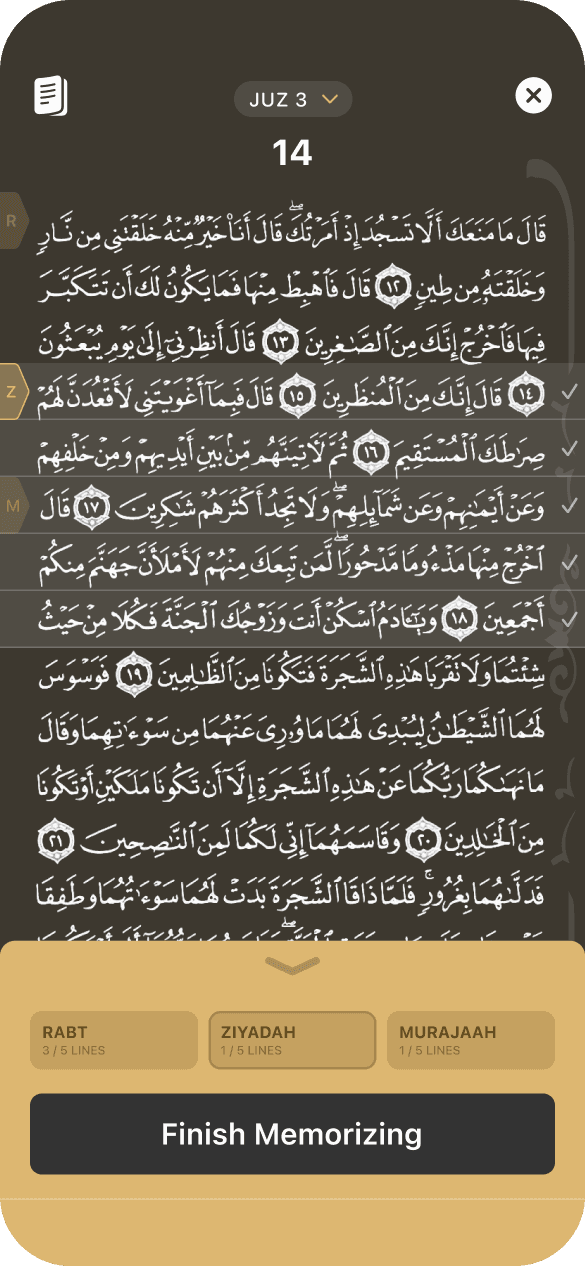 JUZ 3
14
R
قَالَ مَا مَنَعَكَ أَلَّا تَسْجُدَ إِذْ أَمَرْتُكَ ۖ قَالَ أَنَا۠ خَيْرٌ مِّنْهُ خَلَقْتَنِى مِن نَّارٍ
وَخَلَقْتَهُۥ مِن طِينٍ ١٢ قَالَ فَٱهْبِطْ مِنْهَا فَمَا يَكُونُ لَكَ أَن تَتَكَبَّرَ
فِيهَا فَٱخْرُجْ إِنَّكَ مِنَ ٱلصَّـٰغِرِينَ ١٣ قَالَ أَنظِرْنِىٓ إِلَىٰ يَوْمِ يُبْعَثُونَ
Z
١٤ قَالَ إِنَّكَ مِنَ ٱلْمُنظَرِينَ ١٥ قَالَ فَبِمَآ أَغْوَيْتَنِى لَأَقْعُدَنَّ لَهُمْ
صِرَٰطَكَ ٱلْمُسْتَقِيمَ ١٦ ثُمَّ لَـَٔاتِيَنَّهُم مِّنۢ بَيْنِ أَيْدِيهِمْ وَمِنْ خَلْفِهِمْ
M
وَعَنْ أَيْمَـٰنِهِمْ وَعَن شَمَآئِلِهِمْ ۖ وَلَا تَجِدُ أَكْثَرَهُمْ شَـٰكِرِينَ ١٧ قَالَ
ٱخْرُجْ مِنْهَا مَذْءُومًا مَّدْحُورًا ۖ لَّمَن تَبِعَكَ مِنْهُمْ لَأَمْلَأَنَّ جَهَنَّمَ مِنكُمْ
أَجْمَعِينَ ١٨ وَيَـٰٓـَٔادَمُ ٱسْكُنْ أَنتَ وَزَوْجُكَ ٱلْجَنَّةَ فَكُلَا مِنْ حَيْثُ
شِئْتُمَا وَلَا تَقْرَبَا هَـٰذِهِ ٱلشَّجَرَةَ فَتَكُونَا مِنَ ٱلظَّـٰلِمِينَ ١٩ فَوَسْوَسَ
لَهُمَا ٱلشَّيْطَـٰنُ لِيُبْدِىَ لَهُمَا مَا وُۥرِىَ عَنْهُمَا مِن سَوْءَٰتِهِمَا وَقَالَ
مَا نَهَىٰكُمَا رَبُّكُمَا عَنْ هَـٰذِهِ ٱلشَّجَرَةِ إِلَّآ أَن تَكُونَا مَلَكَيْنِ أَوْ تَكُونَا
مِنَ ٱلْخَـٰلِدِينَ ٢٠ وَقَاسَمَهُمَآ إِنِّى لَكُمَا لَمِنَ ٱلنَّـٰصِحِينَ ٢١
فَدَلَّىٰهُمَا بِغُرُورٍ ۚ فَلَمَّا ذَاقَا ٱلشَّجَرَةَ بَدَتْ لَهُمَا سَوْءَٰتُهُمَا وَطَفِقَا
RABT
3 / 5 LINES
ZIYADAH
1 / 5 LINES
MURAJAAH
1 / 5 LINES
Finish Memorizing